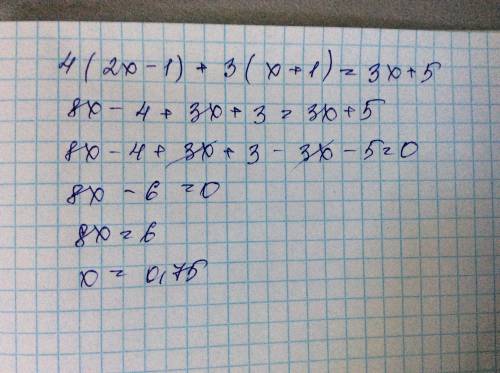 4(2x-1) + 3(x+1) = 3x+5
8x - 4 + 3x + 3 = 3x+5
8x - 4 + 3x + 3 - 3x - 5 = 0
8x - 6 = 0
8x = 6
x = 0,75